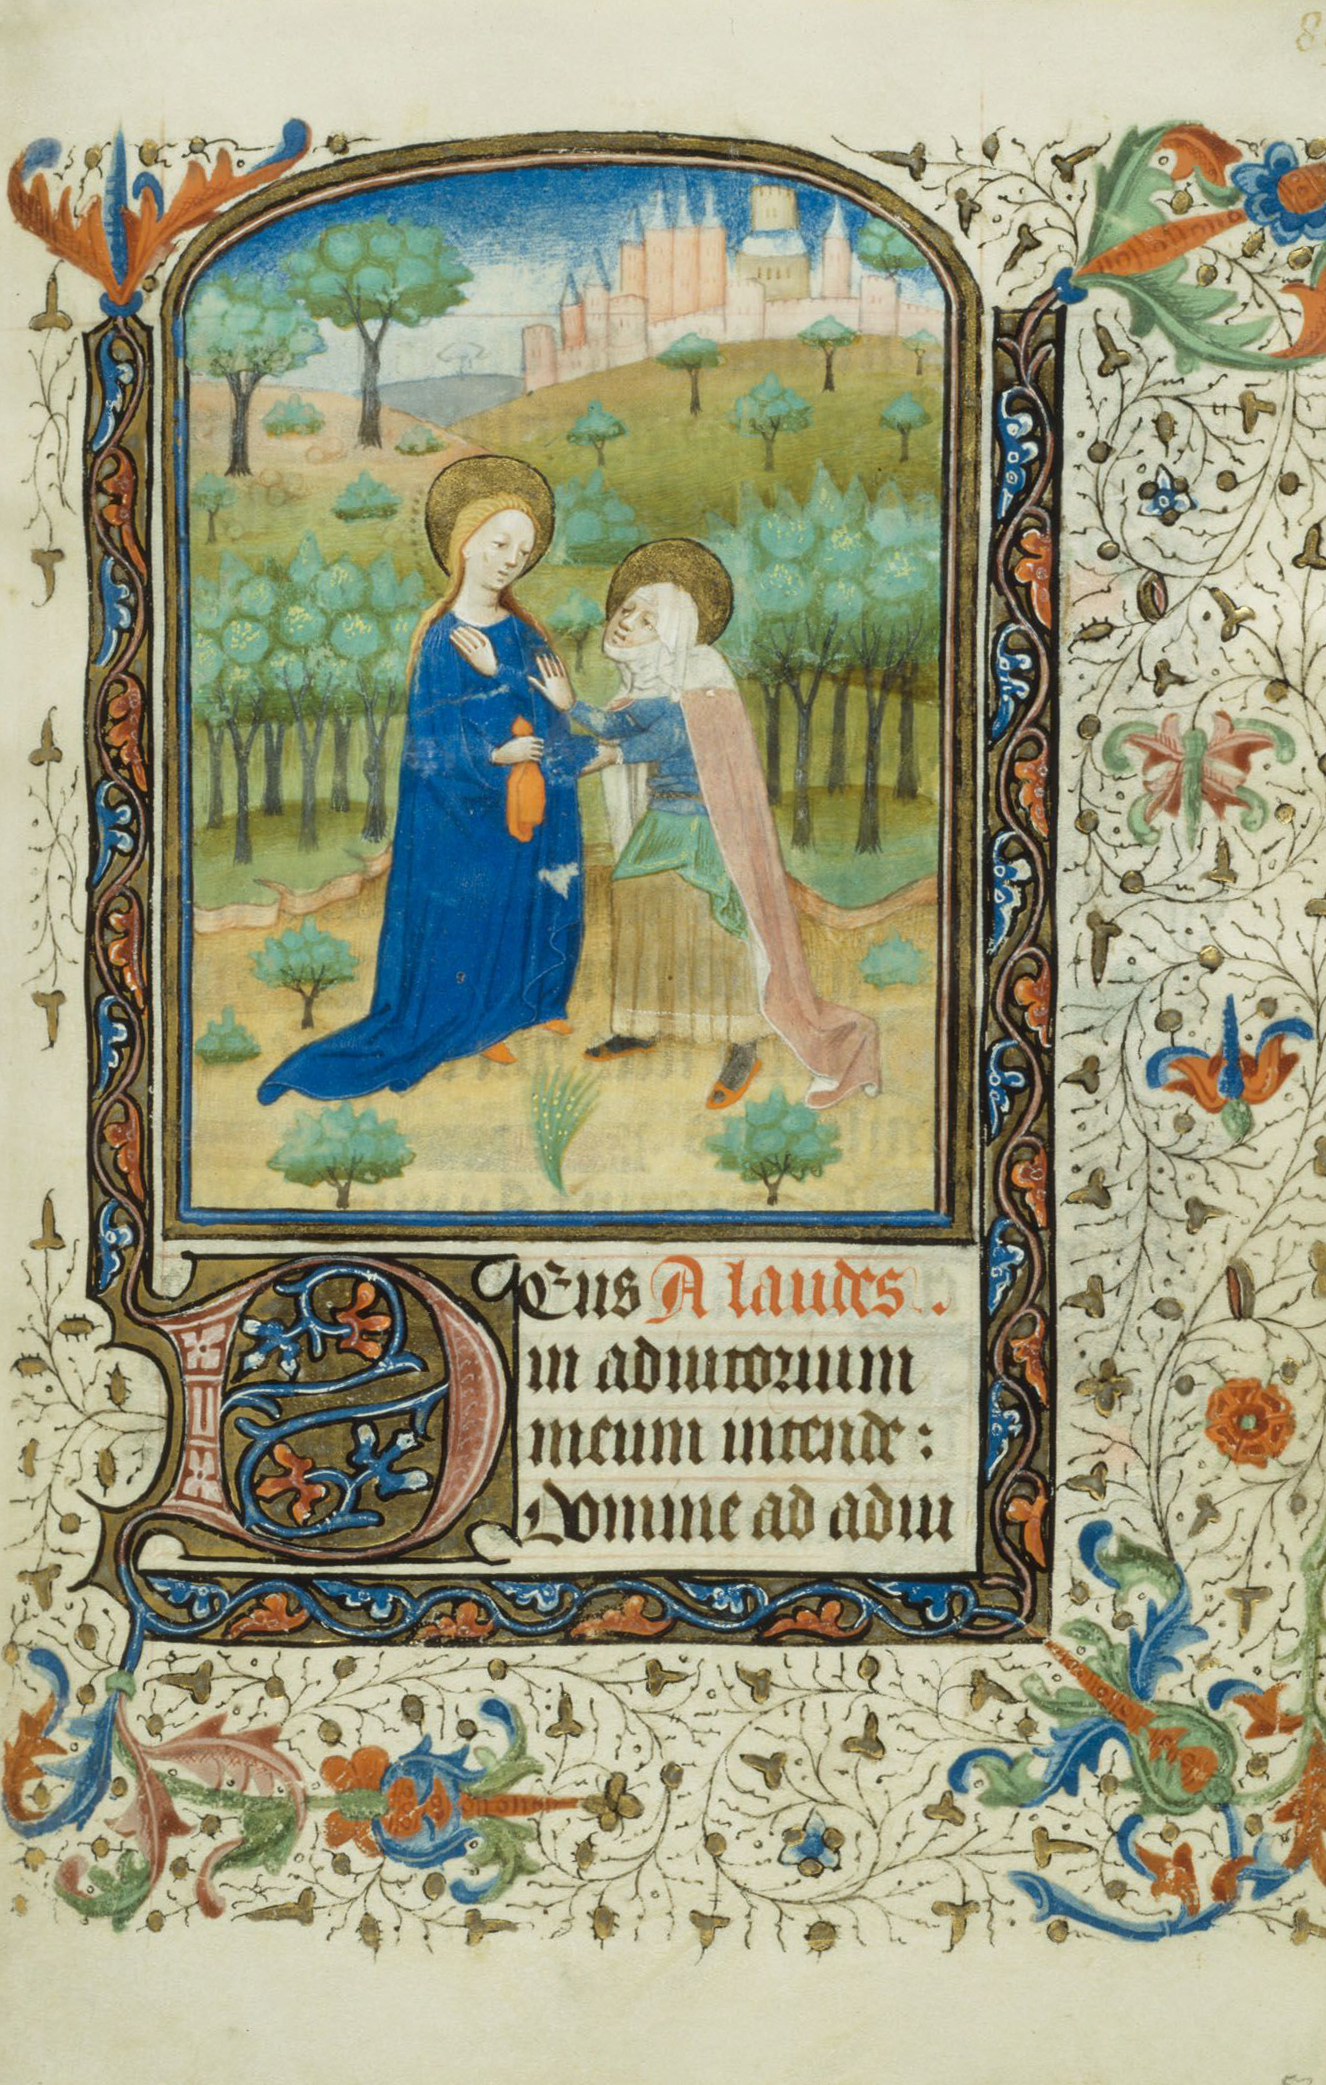 8
Deus A laudes.
in adiutorium
meum intende:
Domine ad adiu